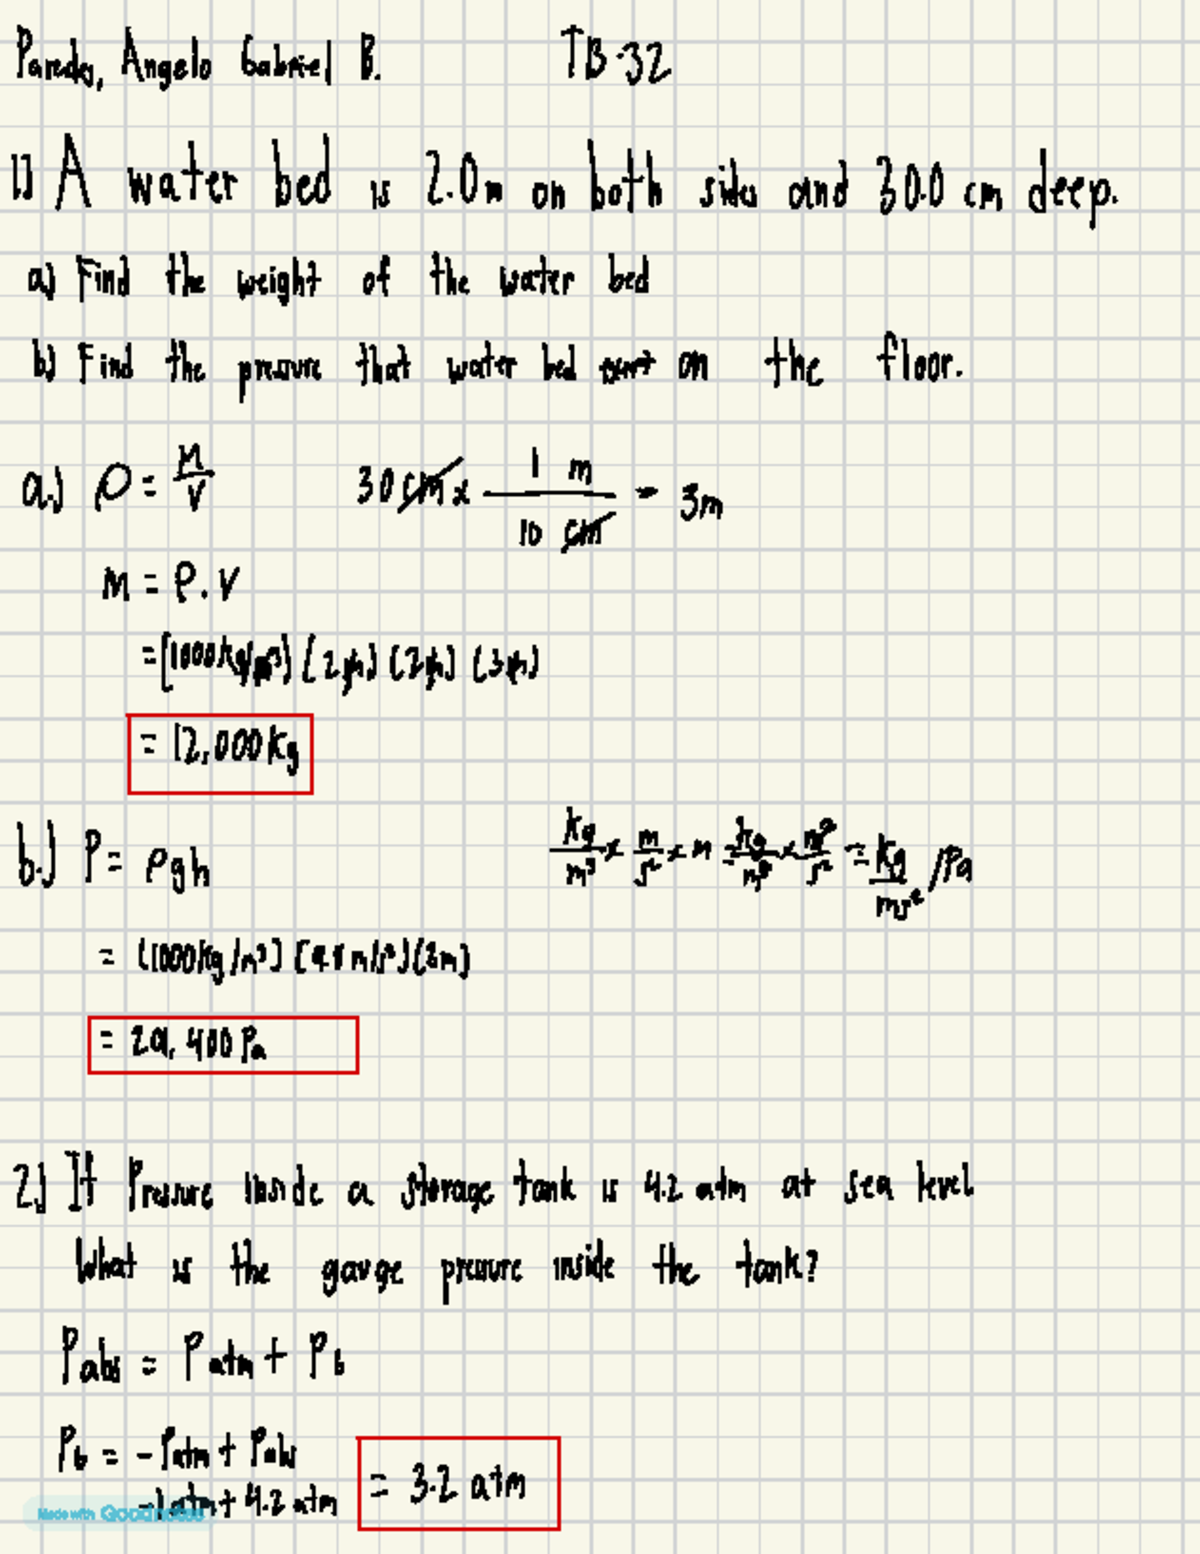 Paredes, Angelo Gabriel B. TB-32
1) A water bed is 2.0m on both sides and 30.0 cm deep.
a) Find the weight of the water bed
b) Find the pressure that water bed exert on the floor.
a.) ρ = M/V 30 cm x 1 m / 10 cm = 3m
M = ρ . V
= (1000kg/m³) (2m) (2m) (3m)
= 12,000 kg
b.) P = ρgh kg/m³ x m/s² x m = kg/m³ x m²/s² = kg/ms² /Pa
= (1000kg/m³) (9.8 m/s²) (3m)
= 29,400 Pa
2.) If Pressure inside a storage tank is 4.2 atm at sea level
What is the gauge pressure inside the tank?
Pabs = Patm + PG
PG = -Patm + Pabs
-1 atm + 4.2 atm = 3.2 atm
Made with Goodnotes